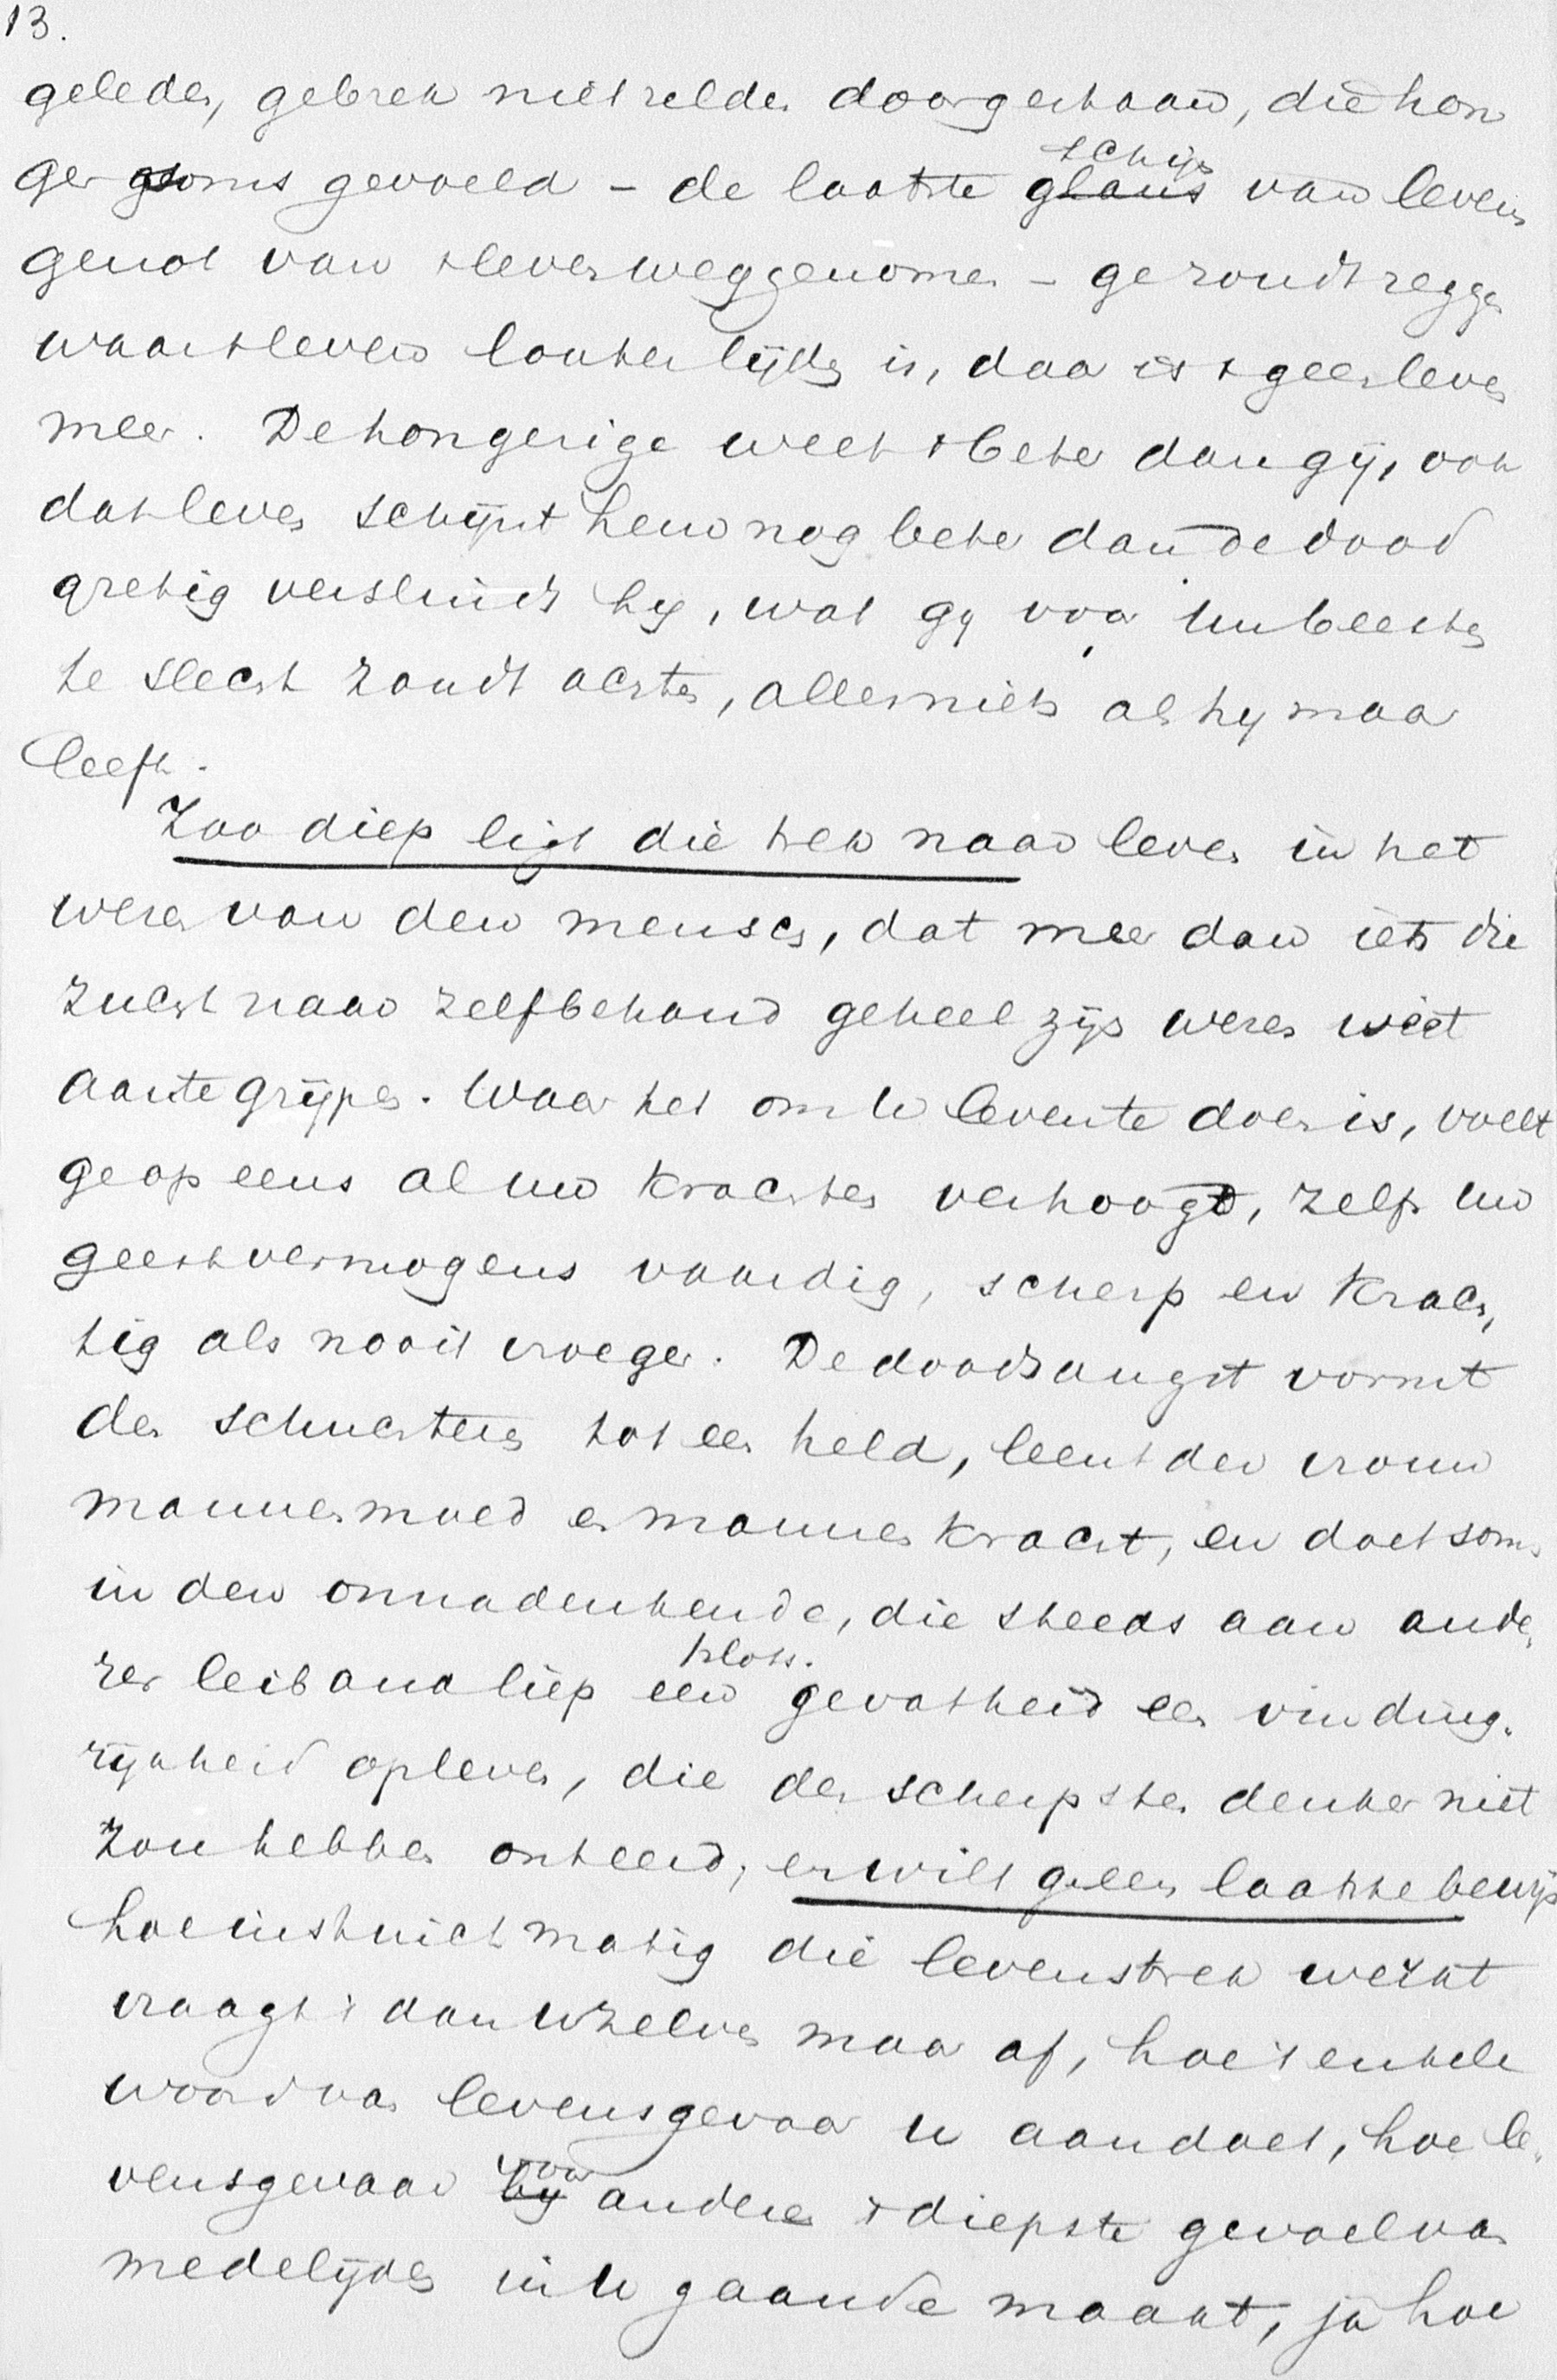 13.
geleden, gebrek niet zelden doorgestaan, die hon
ger soms gevoeld - de laatste schijn van levens
genot van 't leven weggenomen - ge zoudt zeggen
waar 't leven louter lijden is, daar is 't geen leven
meer. De hongerige weet 't beter dan gij, ook
dat leven schijnt hem nog beter dan de dood
gretig verslindt hij, wat gij voor uw beesten
te slecht zoudt achten, alles niets als hij maar
leeft.
Zoo diep ligt die trek naar leven in het
wezen van den mensch, dat meer dan iets die
zucht naar zelfbehoud geheel zijn wezen weet
aan te grijpen. Waar het om u leven te doen is, voelt
ge op eens al uw krachten verhoogd, zelfs uw
geestvermogens vaardig, scherp en krach,
tig als nooit vroeger. De doodsangst vormt
den schuchteren tot een held, leent der vrouw
mannenmoed en mannenkracht, en doet soms
in den onnadenkende, die steeds aan ande,
rer leiband liep een plots. gevatheid een vinding.
rijkheid opleven, die den scherpsten denker niet
zou hebben onteerd, en wilt ge een laatste bewijs
hoe instinctmatig die levenstrek werkt
vraagt 't dan uzelven maar af, hoe 't enkele
woord van levensgevaar u aandoet, hoe le,
vensgevaar bij voor anderen 't diepste gevoel van
medelijden in u gaande maakt, ja hoe